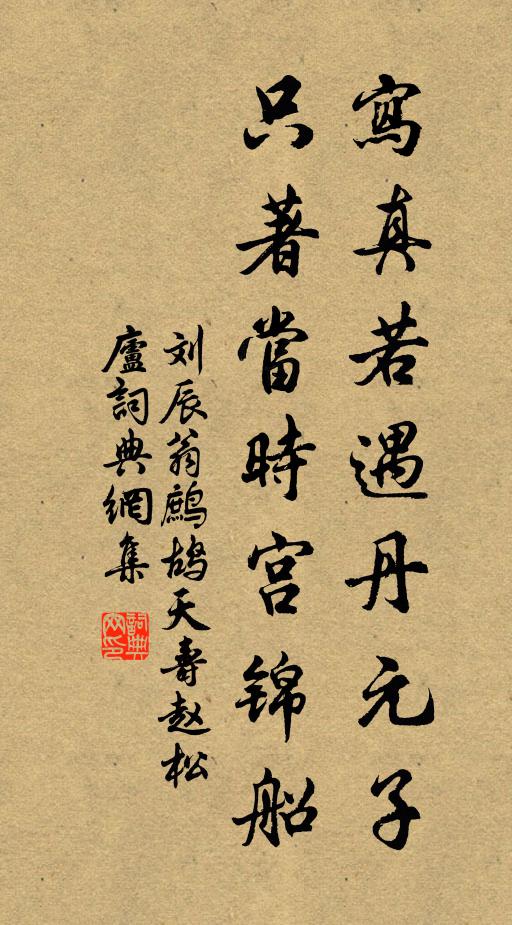 寫真若遇丹元子
只著當時宫锦船
刘辰翁鷓鴣天壽赵松
廬詞典網集
詞典网印